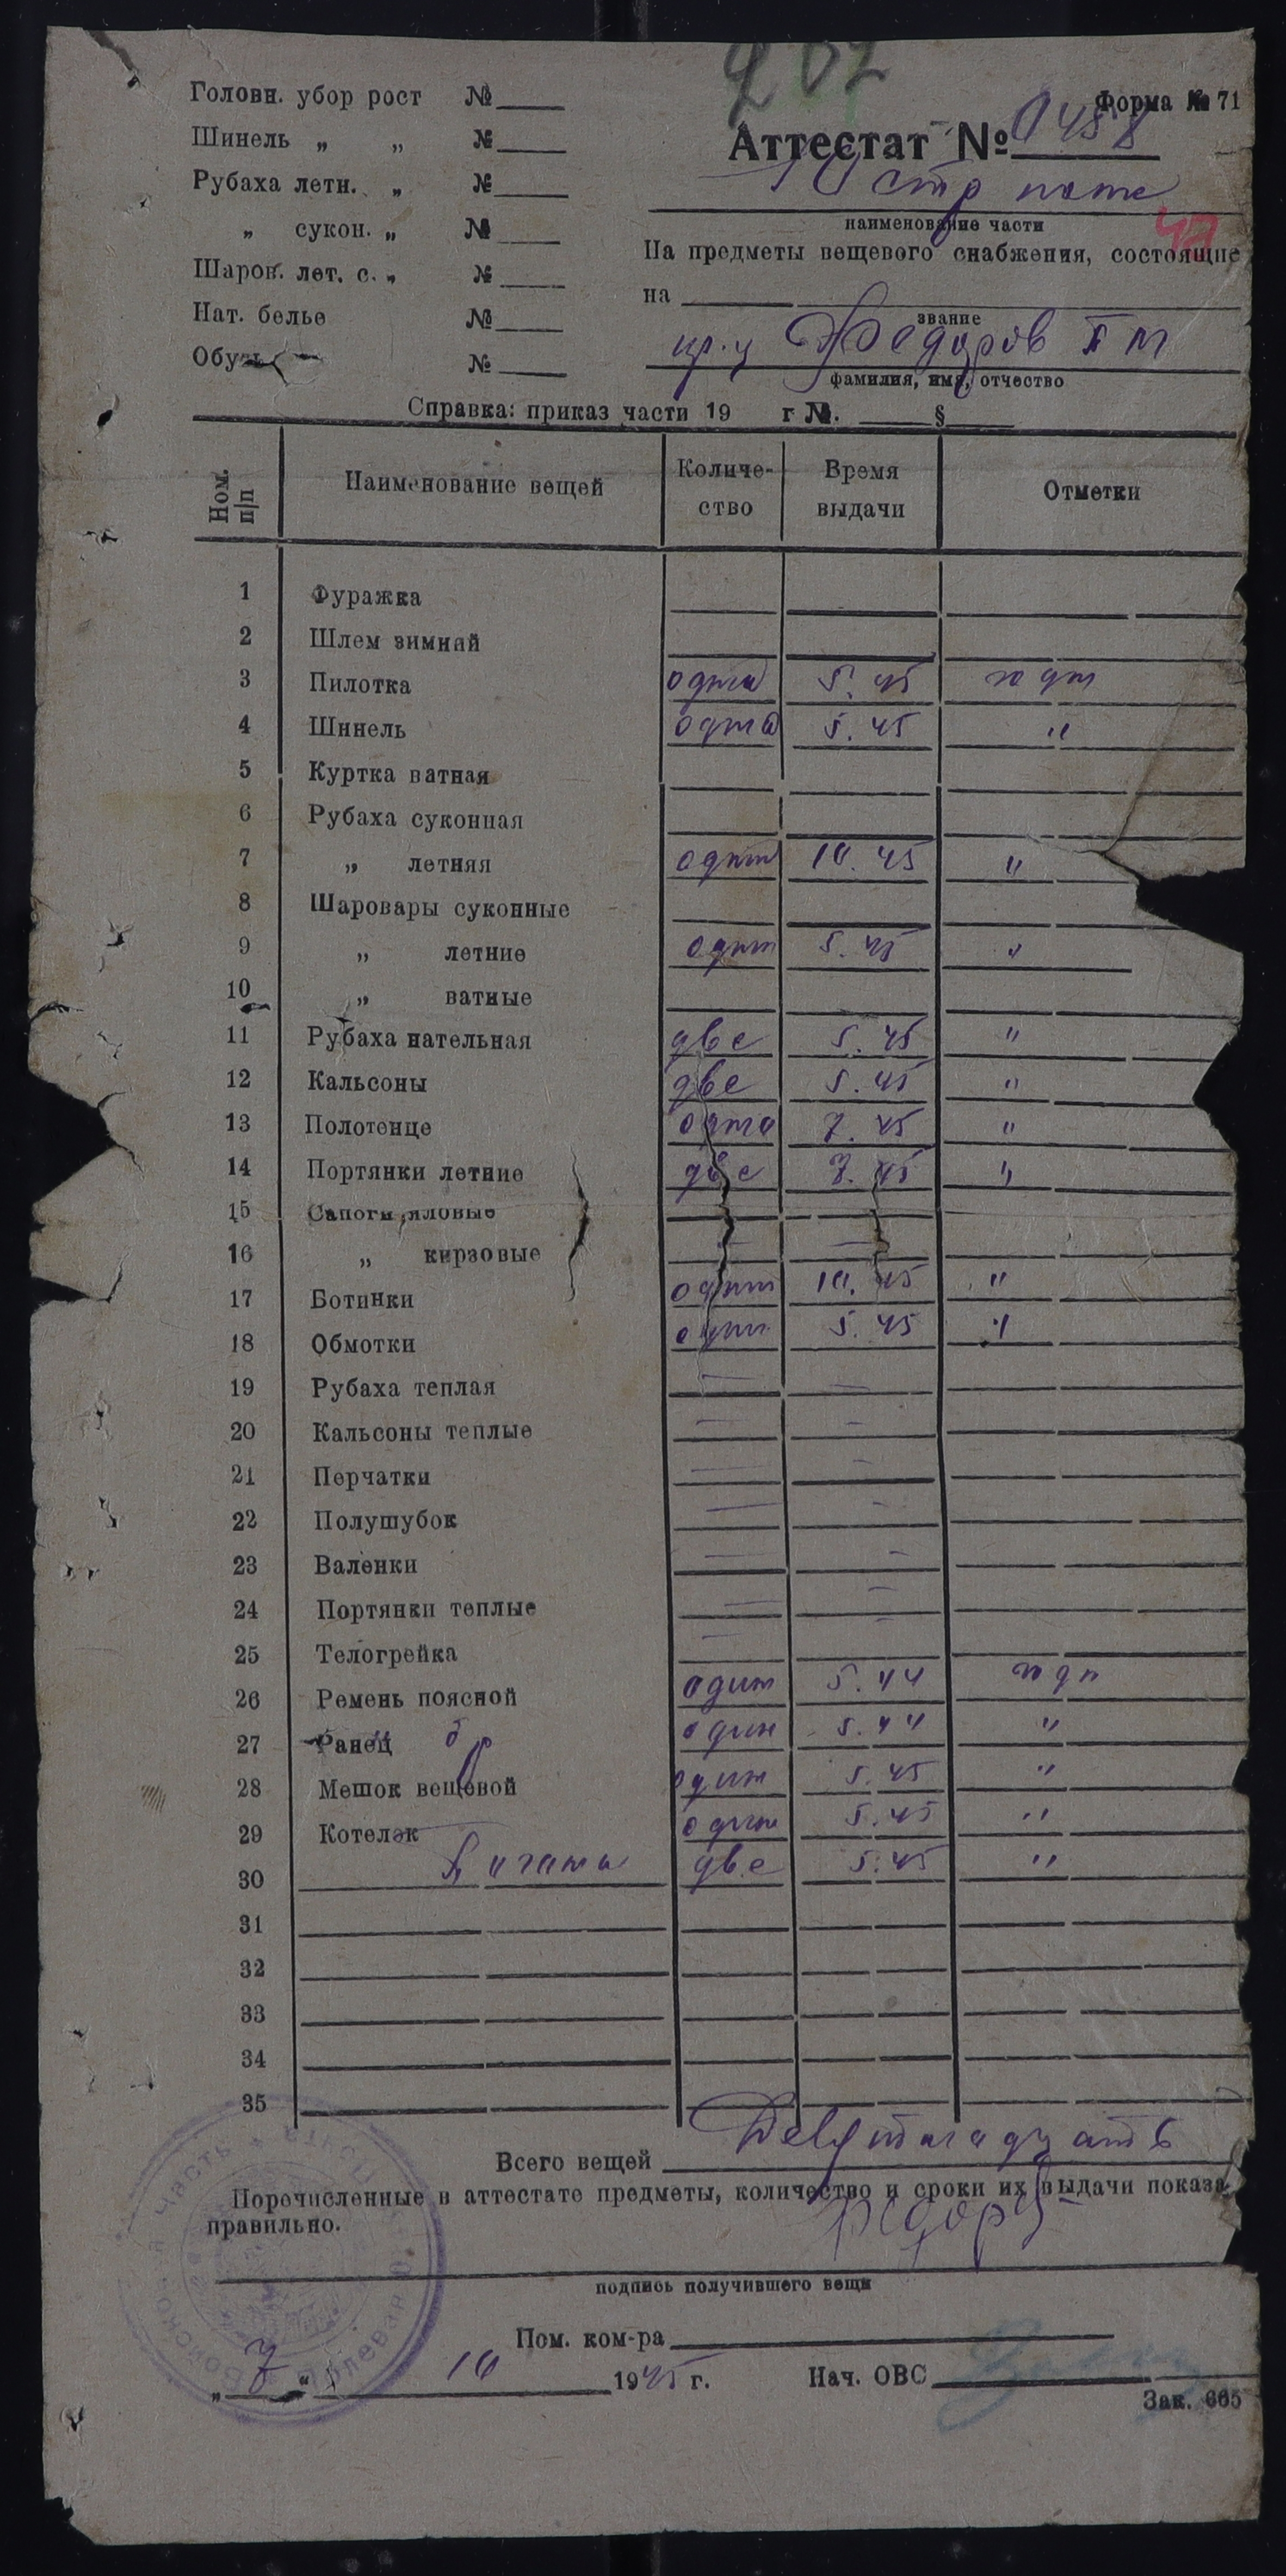 207
Форма № 71
Головн. убор рост №
Шинель „ „ №
Рубаха летн. „ №
„ сукон. „ №
Шаров. лет. с. „ №
Нат. белье №
Обувь №
Аттестат № 0458
10 стр полк
наименование части
47
На предметы вещевого снабжения, состоящие
на
звание
кр-ц Федоров П М
фамилия, имя, отчество
Справка: приказ части 19 г №. §
Ном. п/п Наименование вещей Количество Время выдачи Отметки
1 Фуражка
2 Шлем зимний
3 Пилотка одна 5.45 годн
4 Шинель одна 5.45 "
5 Куртка ватная
6 Рубаха суконная
7 „ летняя одна 10.45 "
8 Шаровары суконные
9 „ летние одни 5.45 "
10 „ ватные
11 Рубаха нательная две 5.45 "
12 Кальсоны две 5.45 "
13 Полотенце одно 7.45 "
14 Портянки летние две 7.45 "
15 Сапоги яловые
16 „ кирзовые — —
17 Ботинки одни 10.45 "
18 Обмотки одни 5.45 "
19 Рубаха теплая — —
20 Кальсоны теплые — —
21 Перчатки — —
22 Полушубок — —
23 Валенки — —
24 Портянки теплые — —
25 Телогрейка — —
26 Ремень поясной один 5.44 годн
27 Ранец " бр один 5.44 "
28 Мешок вещевой один 5.45 "
29 Котелок один 5.45 "
30 две 5.45 "
31
32
33
34
35
Всего вещей Девятнадцать
Перечисленные в аттестате предметы, количество и сроки их выдачи показа
правильно.
Федоров
подпись получившего вещи
Пом. ком-ра
„ 7 “ 10 1945 г. Нач. ОВС
Зак. 665
Войсковая часть Полевая